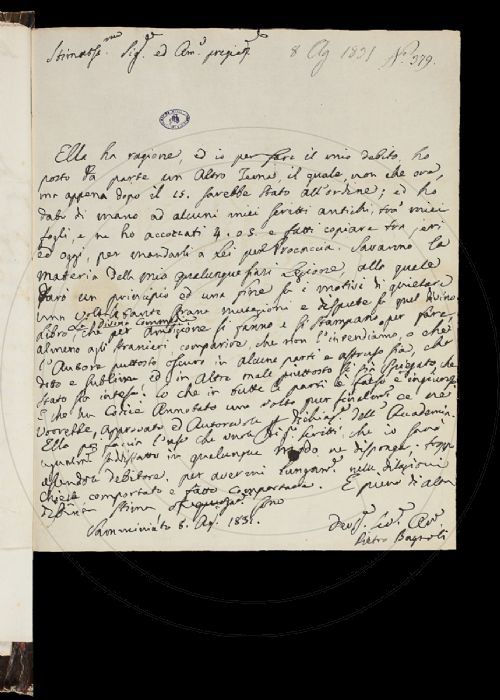 Stimatiss.mo Sig.e ed Am.o pregiat.mo
8 Ag 1831 N.o 379.
Ella ha ragione, ed io per fare il mio debito, ho
posto da parte un altro Tema, il quale, non che ora,
ma appena dopo il 15. sarebbe stato all'ordine; ed ho
dato di mano ad alcuni miei scritti antichi, tra' miei
fogli, e ne ho accozzati 4. o 5. e fatti copiare tra jeri
ed oggi, per mandarli a Lei pel Procaccia. Saranno la
materia della mia qualunque siasi Lezione, alla quale
darò un principio ed una fine
una volta tante strane mutazioni e dispute sul Divino
La Divina Commedia
libro, che per ambizione si fanno e si stampano per
almeno agli stranieri comparire che non l'intendiamo, o che
l'Autore piuttosto oscuro in alcune parti e astruso sia, che
dotto e sublime ed in altre male piuttosto si sia spiegato, che
stato sia inteso: lo che in tutte le parti è falso e ingiurioso
che un Codice Annotato una volta per
vorrebbe, approvato ed autorevole dell'Accademia.
Ella poi faccia l'uso che vuole di scritti, che io sarò
soddisfatto in qualunque modo ne disponga, troppo
essendole debitore, per avermi nella dilazione
chiesta comportato e fatto comportare. E pieno di alta
stima sono
Samminiato 6. Ag. 1831.
Dev.o ed Am.o
Pietro Bagnoli